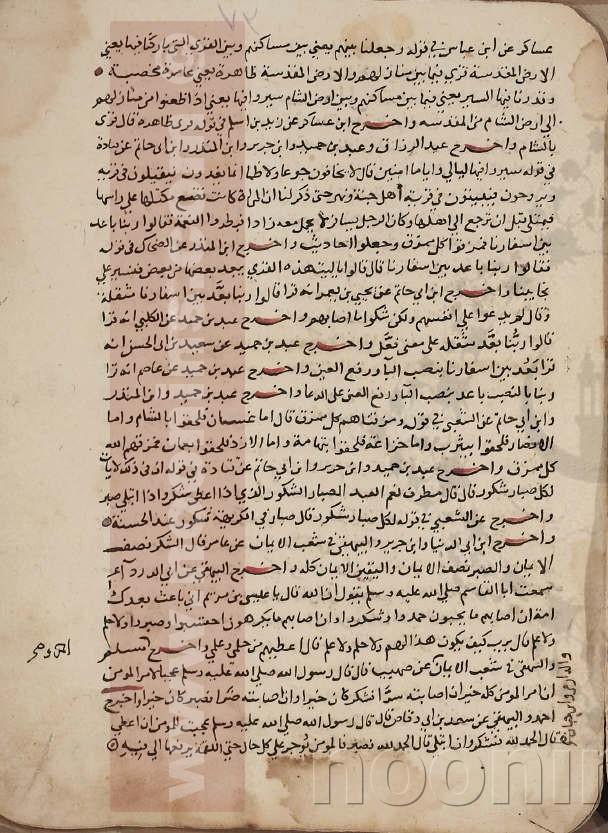 عساكر عن ابن عباس في قوله وجعلنا بينهم يعني بين مساكنهم وبين القرى التي باركنا فيها يعني
الارض المقدسة قرى فيما بين منازلهم والارض المقدسة ظاهرة يعني عامرة مخصبة
وقدرنا فيها السير يعني فيما بين مساكنهم وبين ارض الشام سيروا فيها يعني اذا ظعنوا من منازلهم
الى ارض الشام من المقدسه واخرج ابن عساكر عن زيد بن اسلم في قوله قرى ظاهرة قال قرى
بالشام واخرج عبد الرزاق وعبد بن حميد وابن جرير وابن المنذر وابن ابي حاتم عن قتادة
في قوله سيروا فيها ليالي واياما امنين قال لا يخافون جوعا ولا ظما انما يغدون فيقيلون في قرية
ويروحون فيبيتون في قرية اهل جنة ونهر حتى ذكر لنا ان المراة كانت تضع مكتلها على راسها
فيمتلي قبل ان ترجع الى اهلها وكان الرجل يسافر لا يحمل معه زادا فبطروا النعمة فقالوا ربنا باعد
بين اسفارنا فمزقوا كل ممزق وجعلوا احاديث واخرج ابن المنذر عن الضحاك في قوله
فقالوا ربنا باعد بين اسفارنا قال قالوا يا ليت هذه القرى يبعد بعضها من بعض فنسير على
نجايبنا واخرج ابن ابي حاتم عن يحيى بن يعمر انه قرا قالوا ربنا بعد بين اسفارنا مثقلة
وقال لم يدعوا على انفسهم ولكن شكوا ما اصابهم واخرج عبد بن حميد عن الكلبي انه قرا
قالوا ربنا بعد مثقله على معنى فعل واخرج عبد بن حميد عن سعيد بن ابي الحسن انه
قرا بعد بين اسفارنا بنصب الباء ورفع العين واخرج عبد بن حميد عن عاصم انه قرا
ربنا بالنصب باعد بنصب الباء ورفع العين على الدعا واخرج عبد بن حميد وابن المنذر
وابن ابي حاتم عن الشعبي في قوله ومزقناهم كل ممزق قال اما غسان فلحقوا بالشام واما
الانصار فلحقوا بيثرب واما خزاعة فلحقوا بتهامة واما الازد فلحقوا بعمان فمزقهم الله
كل ممزق واخرج عبد بن حميد وابن جرير وابن ابي حاتم عن قتادة في قوله ان في ذلك لايات
لكل صبار شكور قال قال مطرف نعم العبد الصبار الشكور الذي اذا اعطى شكر واذا ابتلي صبر
واخرج عن الشعبي في قوله لكل صبار شكور قال صبار في الكريهة شكور عند الحسنة
واخرج ابن ابي الدنيا وابن جرير والبيهقي في شعب الايمان عن عامر قال الشكر نصف
الايمان والصبر نصف الايمان واليقين الايمان كله واخرج البيهقي عن ابي الدرداء
سمعت ابا القاسم صلى الله عليه وسلم يقول ان الله قال يا عيسى بن مريم اني باعث بعدك
امة ان اصابهم ما يحبون حمدوا وشكروا وان اصابهم ما يكرهون احتسبوا وصبروا ولا حلم
ولا علم قال يرب كيف يكون هذا لهم ولا حلم ولا علم قال اعطيهم من حلمي وعلمي واخرج مسلم
والبيهقي في شعب الايمان عن صهيب قال قال رسول الله صلى الله عليه وسلم عجبا لامر المومن
ان امر المومن كله خير ان اصابته سرا شكر كان خيرا وان اصابته ضرا فصبر كان خيرا واخرج
احمد والبيهقي عن سعد بن ابي وقاص قال قال رسول الله صلى الله عليه وسلم عجبت للمومن ان اعطي
قال الحمد لله فشكر وان ابتلي قال الحمد لله فصبر فالمومن يوجر على كل حال حتى اللقمة يرفعها الى فيه
noorlib